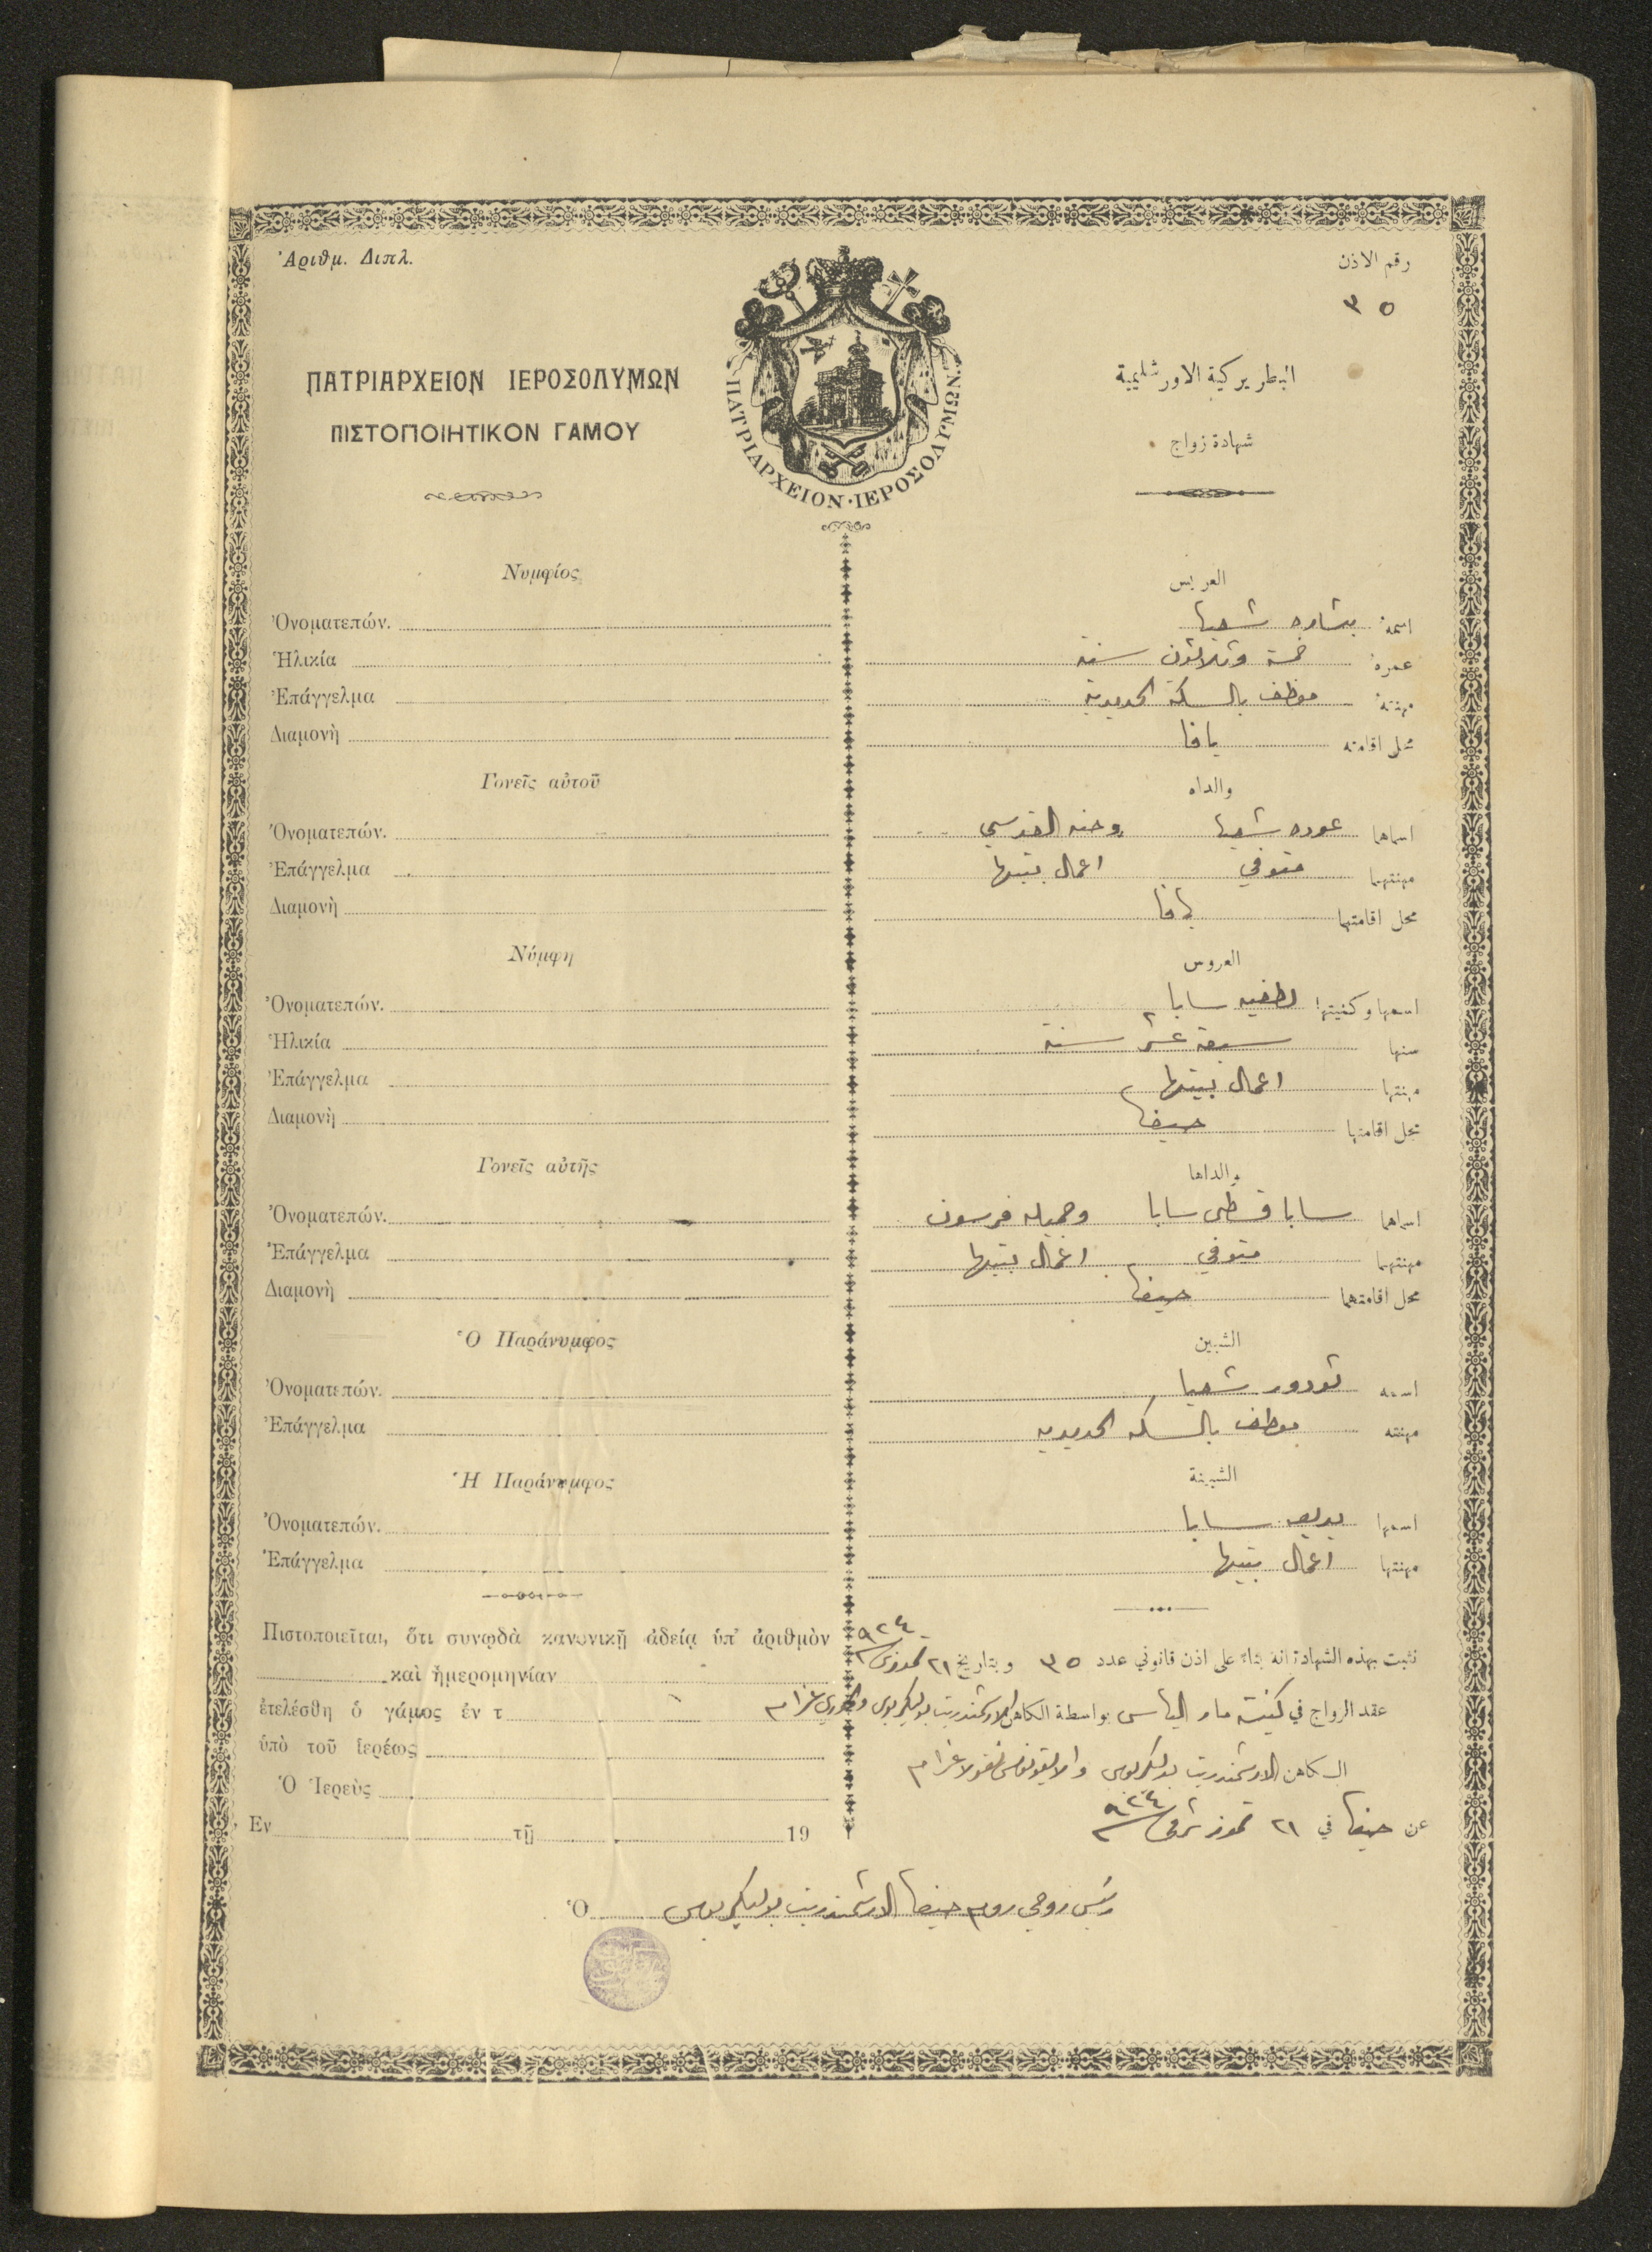 Ἀριθμ. Διπλ.
رقم الاذن
٣٥
ΠΑΤΡΙΑΡΧΕΙΟΝ ΙΕΡΟΣΟΛΥΜΩΝ
البطريركية الاورشليمية
ΠΙΣΤΟΠΟΙΗΤΙΚΟΝ ΓΑΜΟΥ
شهادة زواج
ΠΑΤΡΙΑΡΧΕΙΟΝ·ΙΕΡΟΣΟΛΥΜΩΝ
Νυμφίος
العريس
Ὀνοματεπών.
اسمه بشاره شعيا
Ἡλικία
عمره خمسة وثلاثون سنة
Ἐπάγγελμα
مهنته موظف بالسكة الحديدية
Διαμονὴ
محل اقامته يافا
Γονεῖς αὐτοῦ
والداه
Ὀνοματεπών.
اسماهما عوده شعيا وحنه القدسي
Ἐπάγγελμα
مهنتهما متوفي اعمال بيتها
Διαμονὴ
محل اقامتهما يافا
Νύμφη
العروس
Ὀνοματεπών.
اسمها وكنيتها لطفيه سابا
Ἡλικία
سنها سبعة عشر سنة
Ἐπάγγελμα
مهنتها اعمال بيتها
Διαμονὴ
محل اقامتها حيفا
Γονεῖς αὐτῆς
والداها
Ὀνοματεπών.
اسماهما سابا قسطى سابا وجميله فرسون
Ἐπάγγελμα
مهنتهما متوفي اعمال بيتها
Διαμονὴ
محل اقامتهما حيفا
Ὁ Παράνυμφος
الشبين
Ὀνοματεπών.
اسمه تودور شعيا
Ἐπάγγελμα
مهنته موظف بالسكه الحديديه
Ἡ Παράνυμφος
الشبينة
Ὀνοματεπών.
اسمها بديعه سابا
Ἐπάγγελμα
مهنتها اعمال بيتها
Πιστοποιεῖται, ὅτι συνῳδὰ κανονικῇ ἀδείᾳ ὑπ' ἀριθμὸν
καὶ ἡμερομηνίαν
ἐτελέσθη ὁ γάμος ἐν τ
ὑπὸ τοῦ ἱερέως
Ὁ Ἱερεὺς
Ἐν τῇ 19
نثبت بهذه الشهادة انه بناء على اذن قانوني عدد ٣٥ وبتاريخ ٢١ تموز ٩٢٤
عقد الزواج في كنيسة مار الياس بواسطة الكاهن الارشمندريت بوليكربوس والخوري عزام
الكاهن الارشمندريت بوليكربوس والايقونومس نقولا عزام
عن حيفا في ٢١ تموز شرقي ٩٢٤
Ὁ رئيس روحي روم حيفا الارشمندريت بوليكربوس